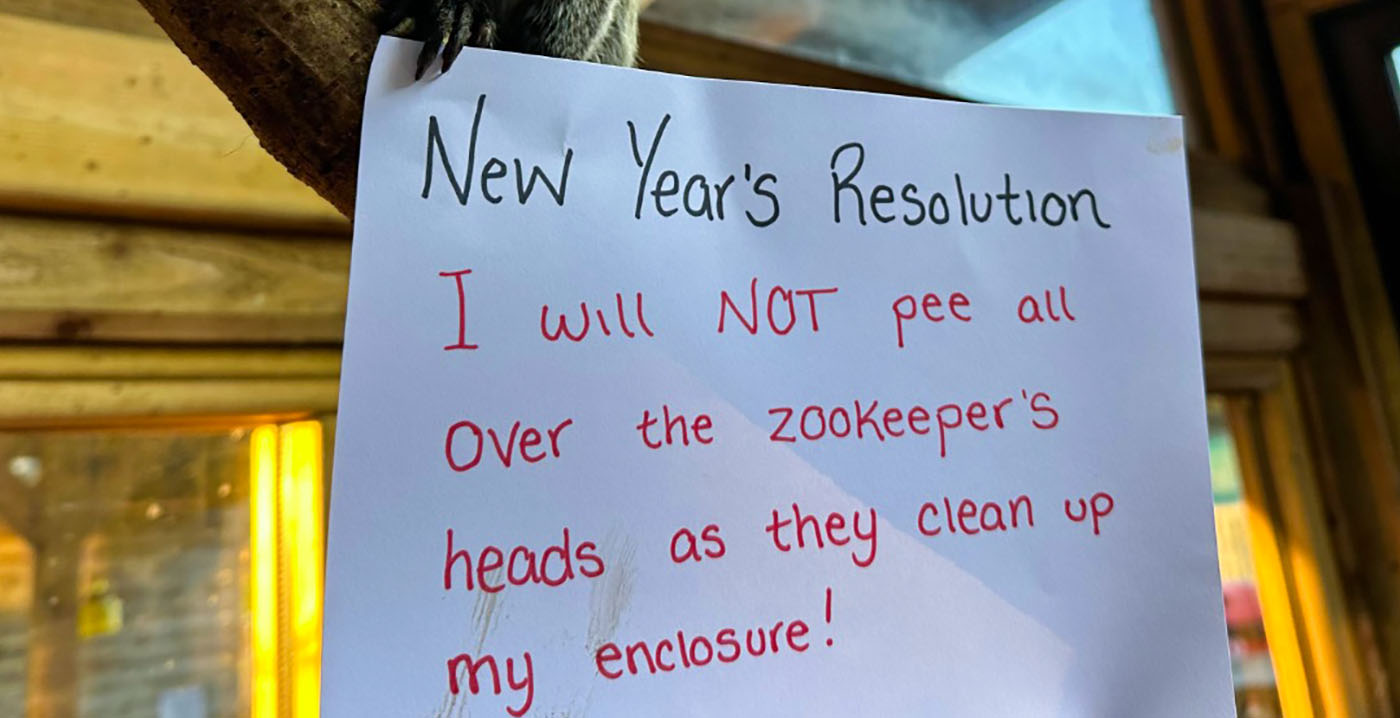 New Year's Resolution
I will NOT pee all
over the zookeeper's
heads as they clean up
my enclosure!